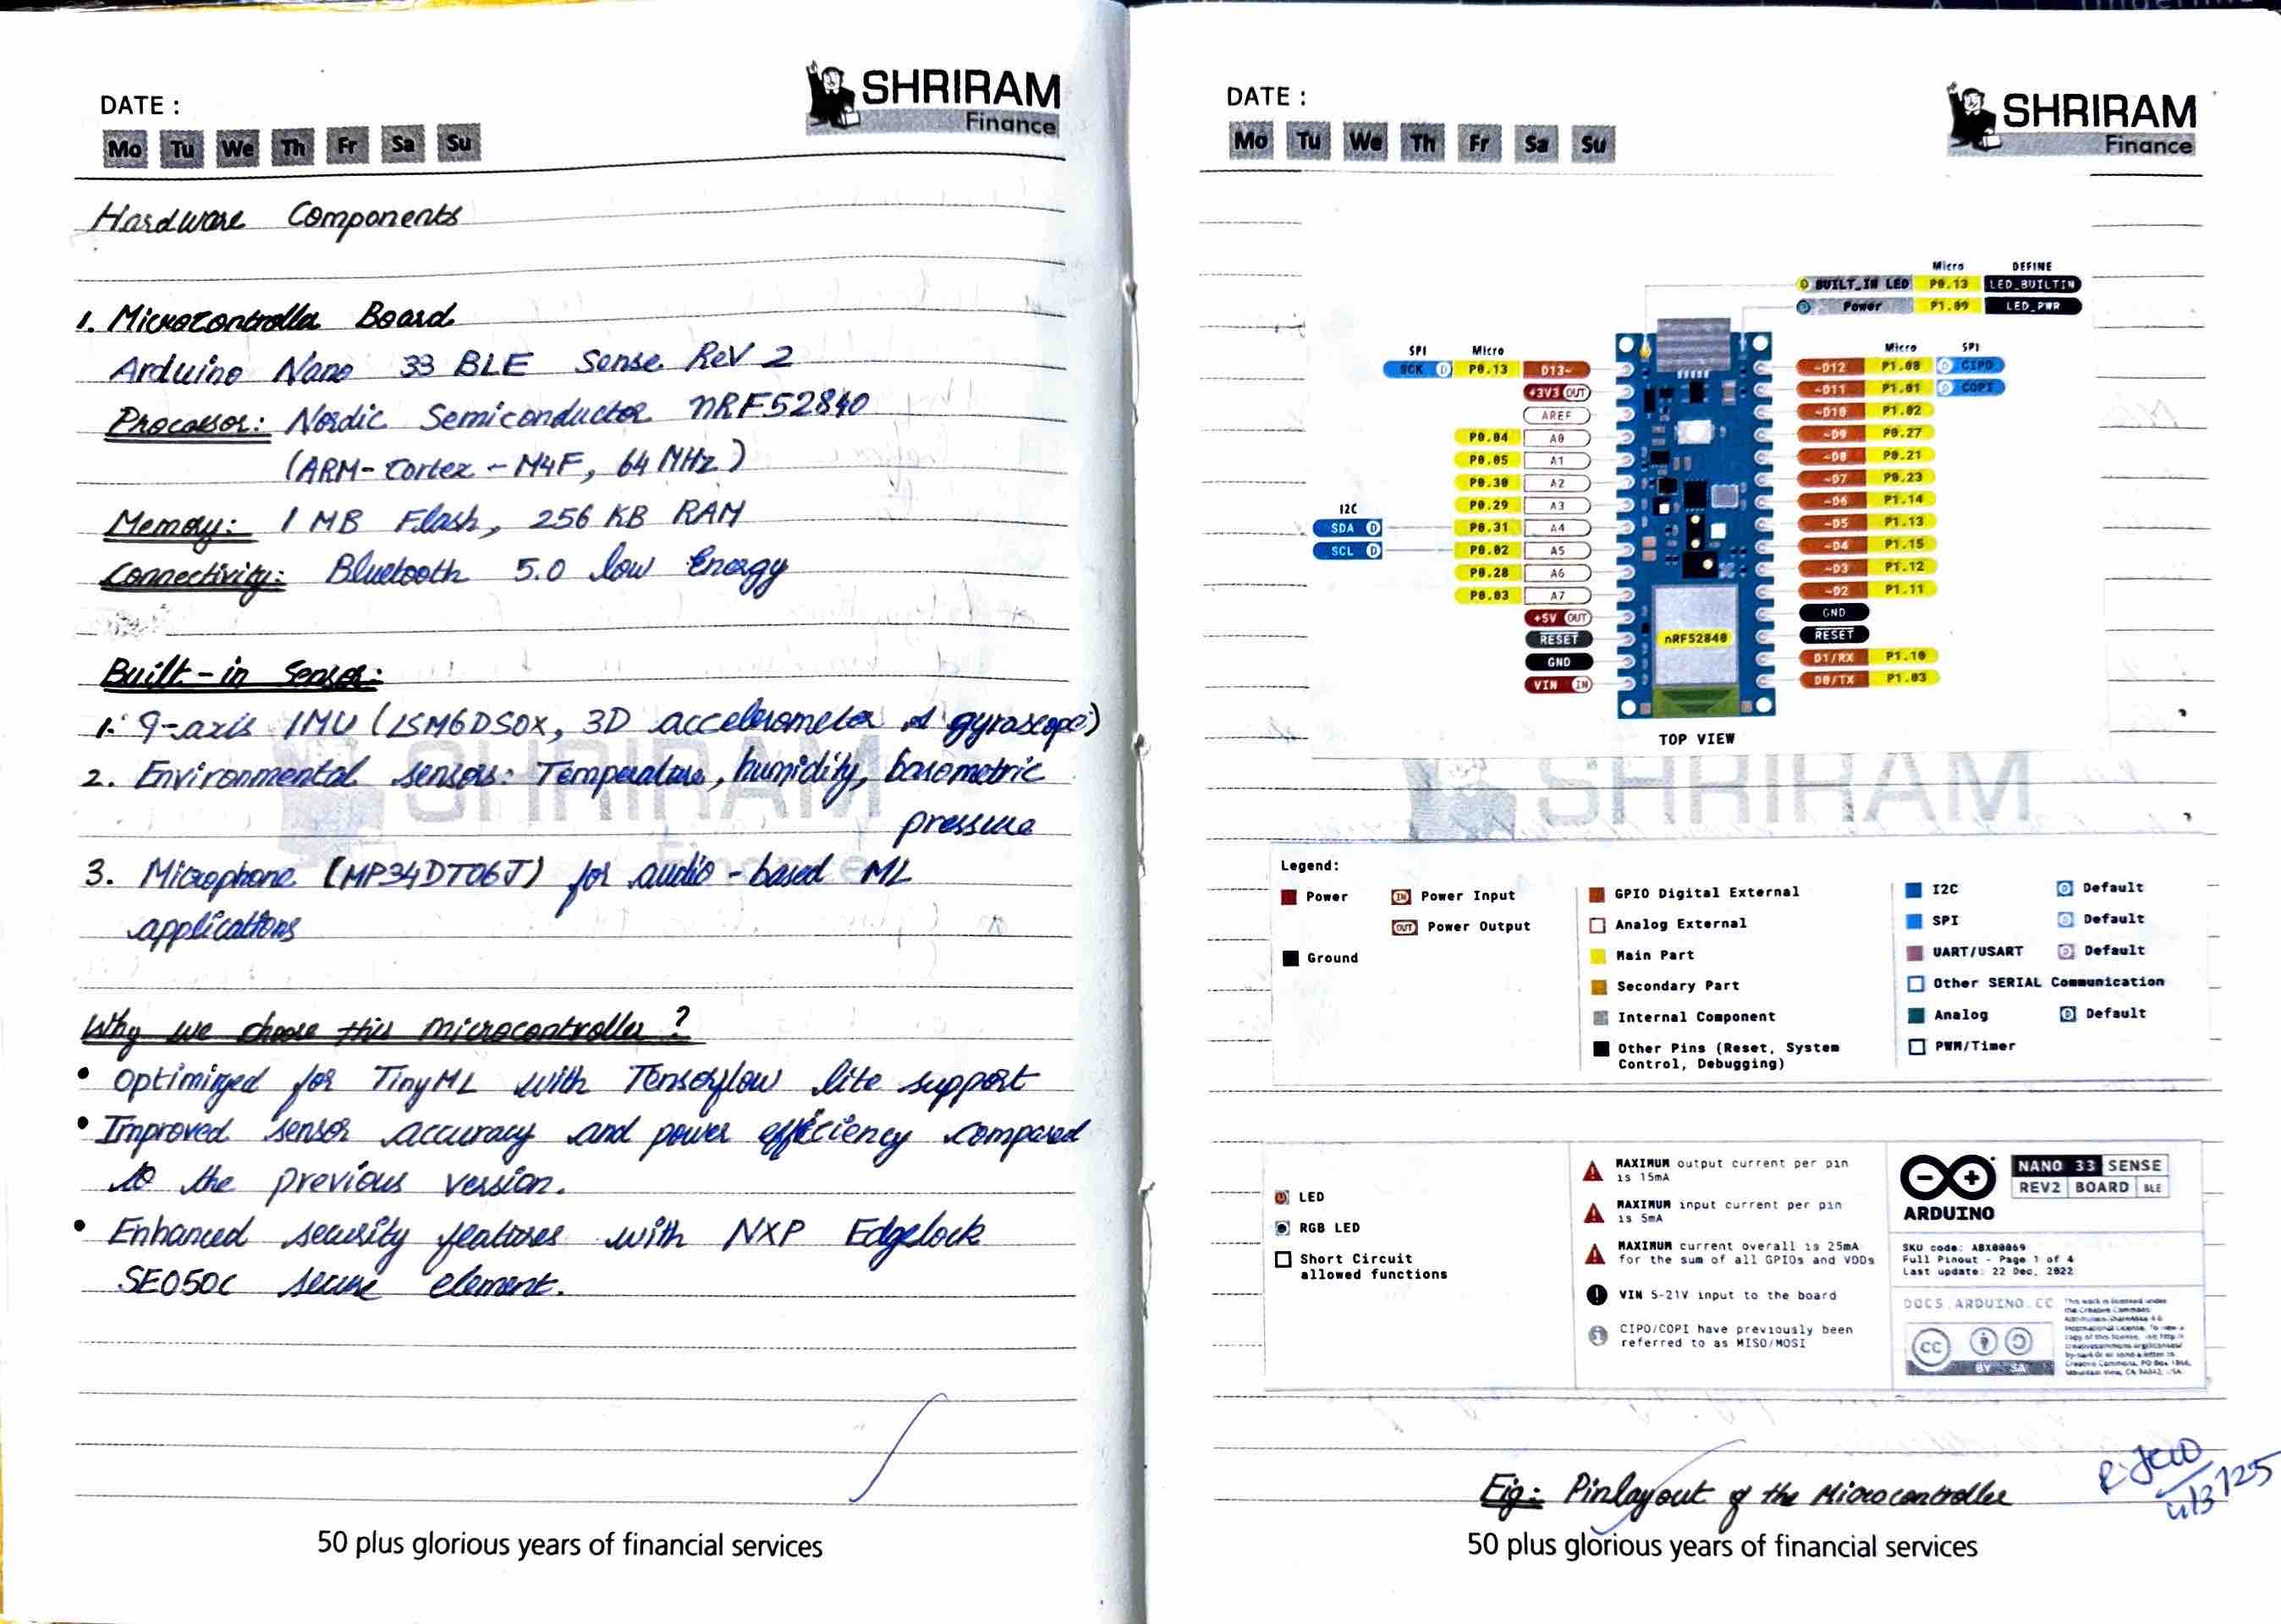 DATE :
SHRIRAM
Finance
Mo Tu We Th Fr Sa Su
Hardware Components
1. Microcontroller Board
Arduino Nano 33 BLE Sense ReV 2
Processor: Nordic Semiconductor nRF52840
(ARM- Cortex - M4F, 64 MHz)
Memory: 1 MB Flash, 256 KB RAM
Connectivity: Bluetooth 5.0 low Energy
Built-in Sensor:
1. 9-axis IMU (LSM6DSOX, 3D accelerometer & gyroscope)
2. Environmental sensors: Temperature, humidity, barometric
pressure
3. Microphone (MP34DT06J) for audio-based ML
applications
Why we choose this microcontroller?
• Optimized for TinyML with Tensorflow lite support
• Improved sensor accuracy and power efficiency compared
to the previous version.
• Enhanced security features with NXP Edgelock
SE050C secure element.
50 plus glorious years of financial services
DATE :
SHRIRAM
Finance
Mo Tu We Th Fr Sa Su
Micro DEFINE
BUILT_IN LED P0.13 LED_BUILTIN
Power P1.09 LED_PWR
SPI Micro
Micro SPI
SCK D P0.13 D13~
~D12 P1.08 D CIPO
+3V3 OUT
~D11 P1.01 D COPI
AREF
~D10 P1.02
P0.04 A0
~D9 P0.27
P0.05 A1
~D8 P0.21
P0.30 A2
~D7 P0.23
P0.29 A3
~D6 P1.14
I2C
SDA D P0.31 A4
~D5 P1.13
SCL D P0.02 A5
~D4 P1.15
P0.28 A6
~D3 P1.12
P0.03 A7
~D2 P1.11
+5V OUT
GND
RESET
RESET
nRF52840
GND
D1/RX P1.10
VIN IN
D0/TX P1.03
TOP VIEW
SHRIRAM
Legend:
Power
IN Power Input
OUT Power Output
Ground
GPIO Digital External
Analog External
Main Part
Secondary Part
Internal Component
Other Pins (Reset, System
Control, Debugging)
I2C D Default
SPI D Default
UART/USART D Default
Other SERIAL Communication
Analog D Default
PWM/Timer
LED
RGB LED
Short Circuit
allowed functions
MAXIMUM output current per pin
is 15mA
MAXIMUM input current per pin
is 5mA
MAXIMUM current overall is 25mA
for the sum of all GPIOs and VDDs
VIN 5-21V input to the board
CIPO/COPI have previously been
referred to as MISO/MOSI
ARDUINO
NANO 33 SENSE
REV2 BOARD BLE
SKU code: ABX00069
Full Pinout - Page 1 of 4
Last update: 22 Dec, 2022
DOCS.ARDUINO.CC
This work is licensed under
the Creative Commons
CC BY SA
Fig: Pinlayout of the Microcontroller
50 plus glorious years of financial services